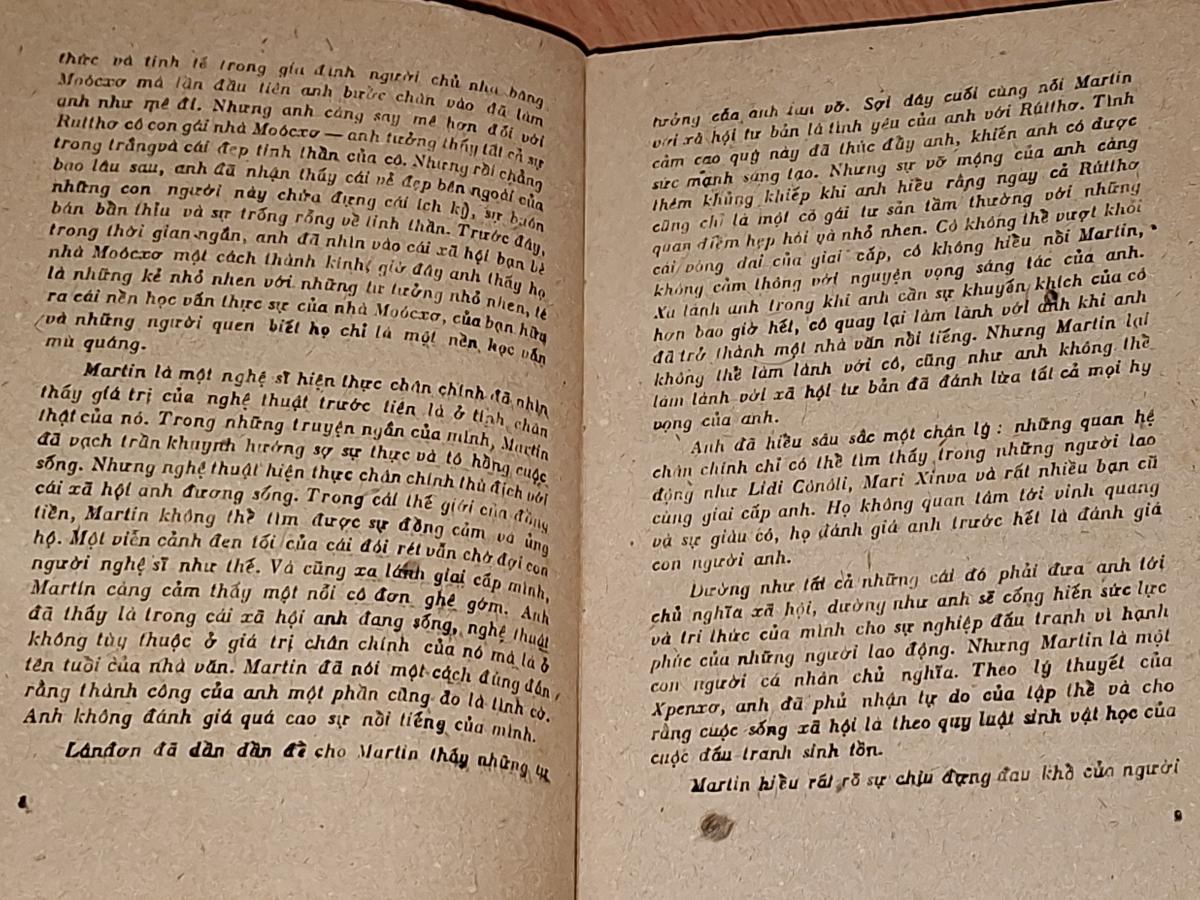 thức và tinh tế trong gia đình người chủ nhà băng
Moócxơ mà lần đầu tiên anh bước chân vào đã làm
anh như mê đi. Nhưng anh càng say mê hơn đối với
Rutthơ cô con gái nhà Moócxơ — anh tưởng thấy tất cả sự
trong trắngvà cái đẹp tinh thần của cô. Nhưng rồi chẳng
bao lâu sau, anh đã nhận thấy cái vẻ đẹp bên ngoài của
những con người này chứa đựng cái ích kỷ, sự buôn
bán bần thỉu và sự trống rỗng về tinh thần. Trước đây,
trong thời gian ngắn, anh đã nhìn vào cái xã hội bạn bè
nhà Moócxơ một cách thành kính; giờ đây anh thấy họ
là những kẻ nhỏ nhen với những tư tưởng nhỏ nhen, lẽ
ra cái nền học vấn thực sự của nhà Moócxơ, của bạn hữu
và những người quen biết họ chỉ là một nền học vấn
mù quáng.
Martin là một nghệ sĩ hiện thực chân chính đã nhìn
thấy giá trị của nghệ thuật trước tiên là ở tính chân
thật của nó. Trong những truyện ngắn của mình, Martin
đã vạch trần khuynh hướng sợ sự thực và tô hồng cuộc
sống. Nhưng nghệ thuật hiện thực chân chính thù địch với
cái xã hội anh đương sống. Trong cái thế giới của đồng
tiền, Martin không thể tìm được sự đồng cảm và ủng
hộ. Một viễn cảnh đen tối của cái đói rét vẫn chờ đợi con
người nghệ sĩ như thế. Và cũng xa lánh giai cấp mình,
Martin càng cảm thấy một nỗi cô đơn ghê gớm. Anh
đã thấy là trong cái xã hội anh đang sống, nghệ thuật
không tùy thuộc ở giá trị chân chính của nó mà là ở
tên tuổi của nhà văn. Martin đã nói một cách đúng đắn,
rằng thành công của anh một phần cũng do là tình cờ.
Anh không đánh giá quá cao sự nổi tiếng của mình.
Lânđơn đã dần dần để cho Martin thấy những tư
8
tưởng của anh tan vỡ. Sợi dây cuối cùng nối Martin
với xã hội tư bản là tình yêu của anh với Rútthơ. Tình
cảm cao quý này đã thúc đẩy anh, khiến anh có được
sức mạnh sáng tạo. Nhưng sự vỡ mộng của anh càng
thêm khủng khiếp khi anh hiểu rằng ngay cả Rútthơ
cũng chỉ là một cô gái tư sản tầm thường với những
quan điểm hẹp hòi và nhỏ nhen. Cô không thể vượt khỏi
cái vòng đai của giai cấp, cô không hiểu nổi Martin,
không cảm thông với nguyện vọng sáng tác của anh.
Xa lánh anh trong khi anh cần sự khuyến khích của cô
hơn bao giờ hết, cô quay lại làm lành với anh khi anh
đã trở thành một nhà văn nổi tiếng. Nhưng Martin lại
không thể làm lành với cô, cũng như anh không thể
làm lành với xã hội tư bản đã đánh lừa tất cả mọi hy
vọng của anh.
Anh đã hiểu sâu sắc một chân lý : những quan hệ
chân chính chỉ có thể tìm thấy trong những người lao
động như Lidi Cônôli, Mari Xinva và rất nhiều bạn cũ
cùng giai cấp anh. Họ không quan tâm tới vinh quang
và sự giàu có, họ đánh giá anh trước hết là đánh giá
con người anh.
Dường như tất cả những cái đó phải đưa anh tới
chủ nghĩa xã hội, dường như anh sẽ cống hiến sức lực
và tri thức của mình cho sự nghiệp đấu tranh vì hạnh
phúc của những người lao động. Nhưng Martin là một
con người cá nhân chủ nghĩa. Theo lý thuyết của
Xpenxơ, anh đã phủ nhận tự do của tập thể và cho
rằng cuộc sống xã hội là theo quy luật sinh vật học của
cuộc đấu tranh sinh tồn.
Martin hiểu rất rõ sự chịu đựng đau khổ của người
9